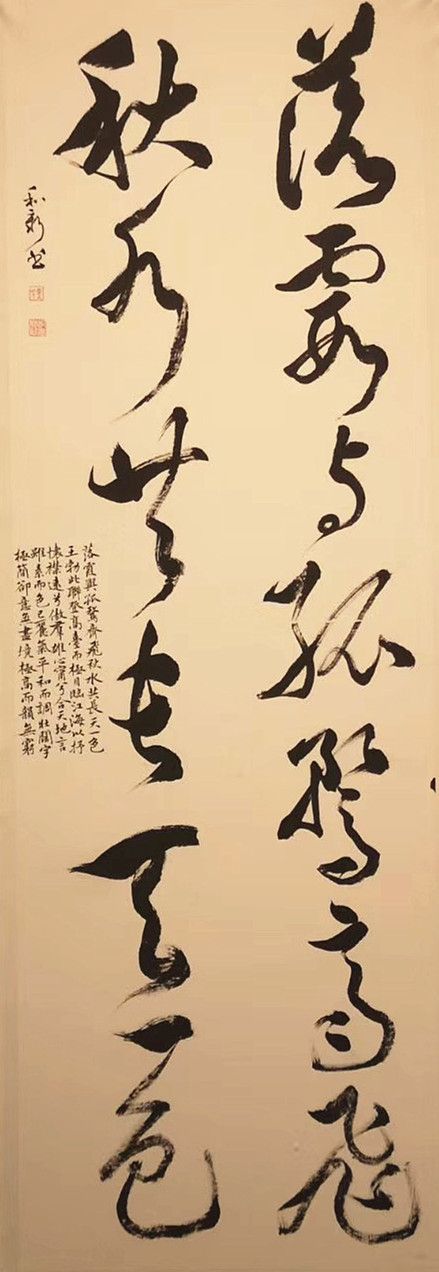 落霞与孤鶩齊飛
秋水共長天一色
落霞與孤鶩齊飛秋水共長天一色
王勃此聯登高臺而極目臨江海以抒
懷襟遠兮傲羣雄心甯兮合天地言
雖素而色已麗氣平和而調壯闊字
極簡卻意無盡境極高而韻無窮
和新書